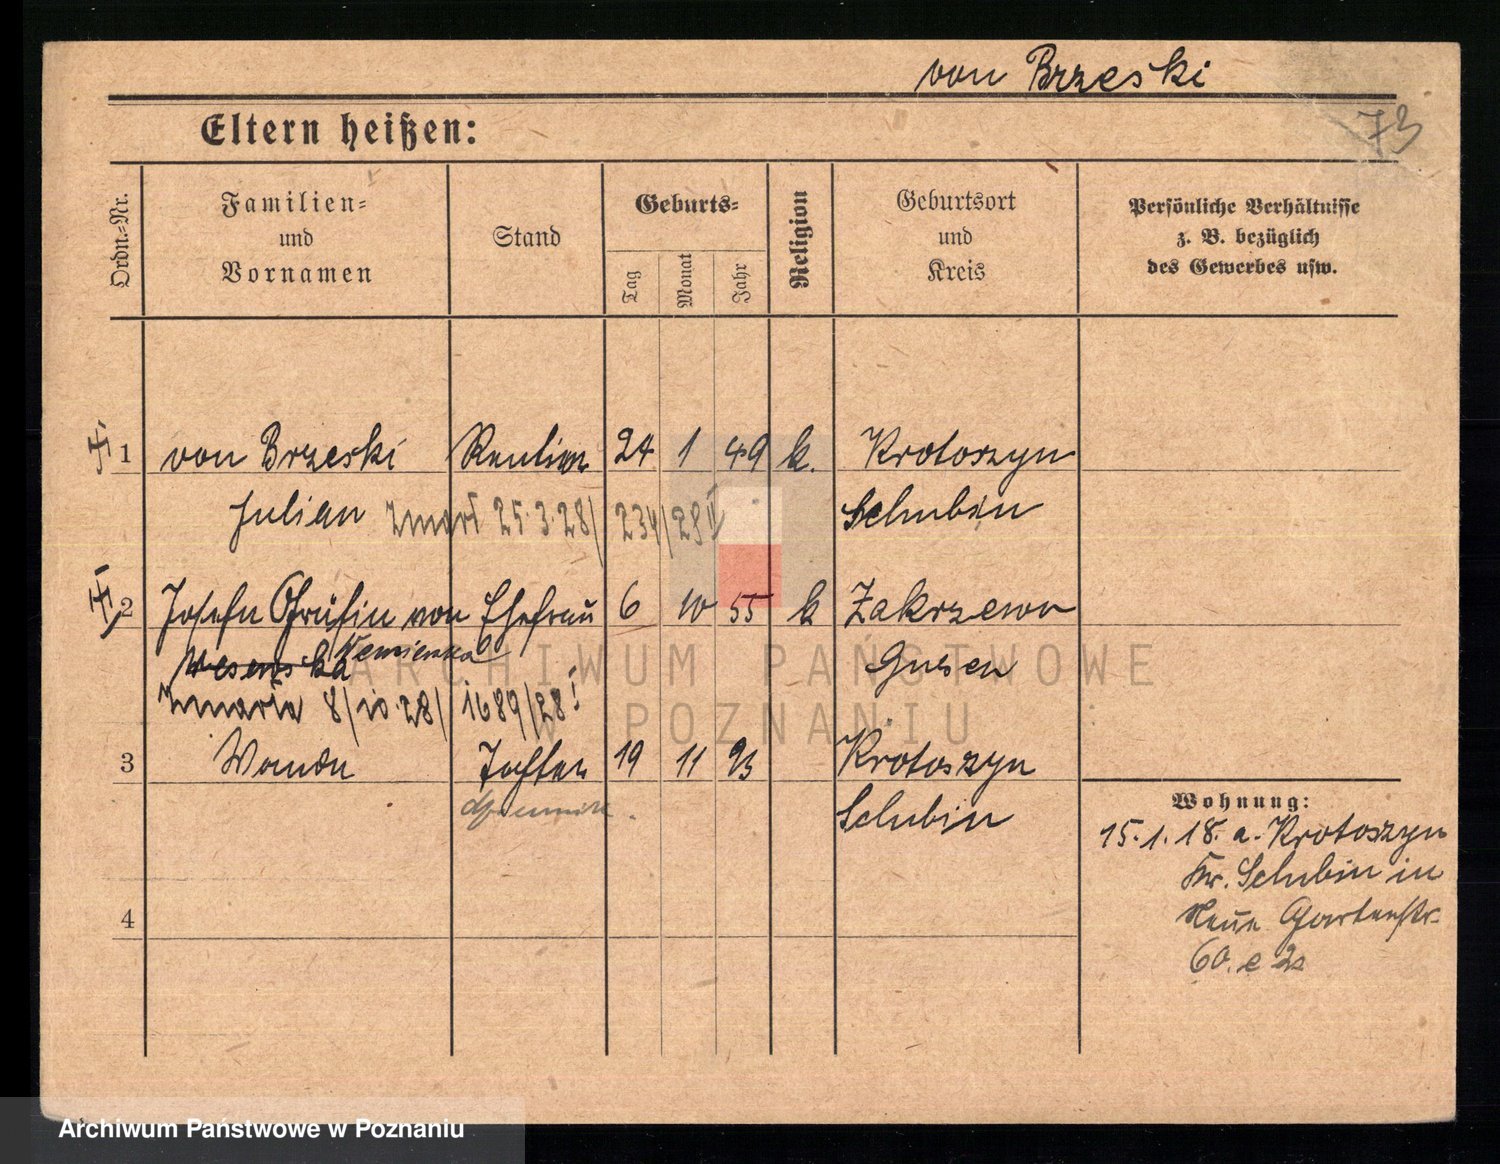 von Brzeski
73
Eltern heißen:
Ordn.-Nr.
Familien- und Vornamen
Stand
Geburts-
Tag
Monat
Jahr
Religion
Geburtsort und Kreis
Persönliche Verhältnisse z. B. bezüglich des Gewerbes usw.
1 von Brzeski Rentier 24 1 49 k. Krotoszyn
Julian zmarł 25.3.28/ 234/28 II Schubin
2 Josefa Gräfin von Ehefrau 6 10 55 k Zakrzewo
Gnesen
zmarła 8/10.28/ 1689/28 I
3 Wanda Tochter 19 11 93 Krotoszyn
Schubin
4
Wohnung:
15.1.18. a. Krotoszyn
Kr. Schubin in
Neue Gartenstr.
60.
ARCHIWUM PAŃSTWOWE
W POZNANIU
Archiwum Państwowe w Poznaniu